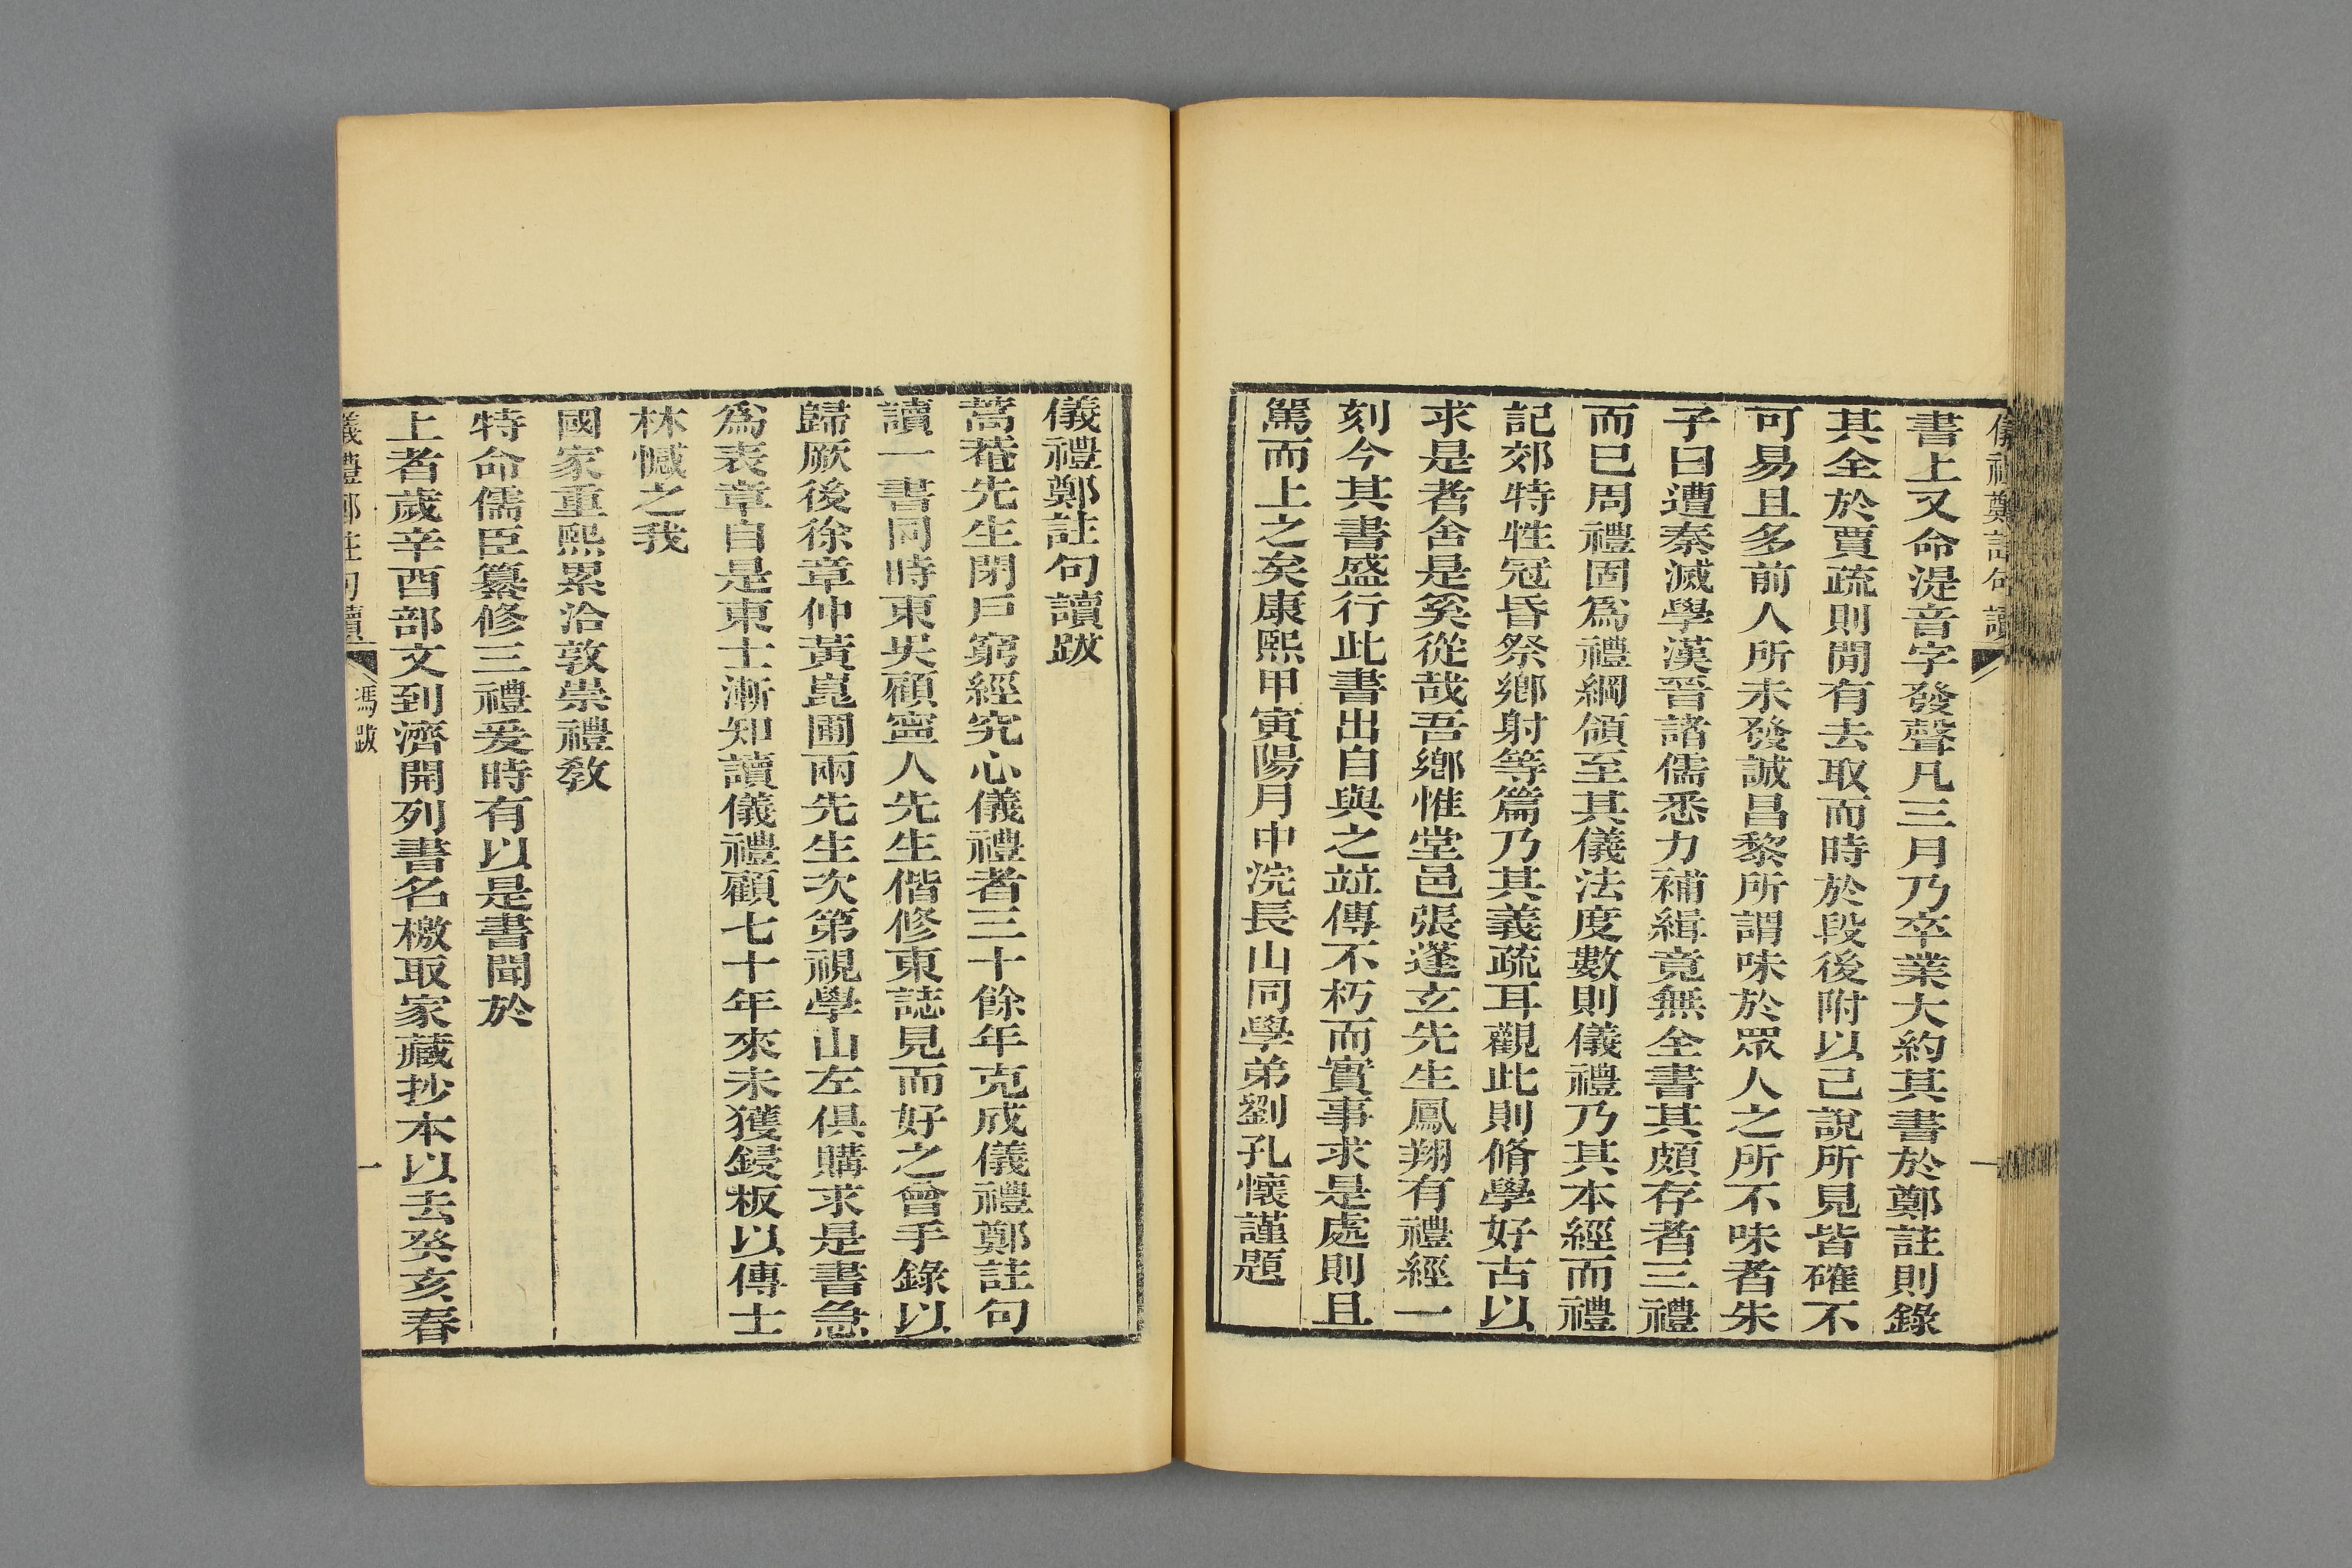 儀禮鄭註句讀
書上又命湜音字發聲凡三月乃卒業大約其書於鄭註則錄
其全於賈疏則閒有去取而時於段後附以己說所見皆確不
可易且多前人所未發誠昌黎所謂味於眾人之所不味者朱
子曰遭秦滅學漢晉諸儒悉力補緝竟無全書其頗存者三禮
而已周禮固爲禮綱領至其儀法度數則儀禮乃其本經而禮
記郊特牲冠昏祭鄉射等篇乃其義疏耳觀此則脩學好古以
求是者舍是奚從哉吾鄉惟堂邑張蓬玄先生鳳翔有禮經一
刻今其書盛行此書出自與之竝傳不朽而實事求是處則且
駕而上之矣康熙甲寅陽月中浣長山同學弟劉孔懷謹題
儀禮鄭註句讀跋
蒿菴先生閉戶窮經究心儀禮者三十餘年克成儀禮鄭註句
讀一書同時東吳顧寧人先生偕修東誌見而好之曾手錄以
歸厥後徐章仲黃崑圃兩先生次第視學山左俱購求是書急
爲表章自是東士漸知讀儀禮顧七十年來未獲鋟板以傳士
林憾之我
國家重熙累洽敦崇禮教
特命儒臣纂修三禮爰時有以是書聞於
上者歲辛酉部文到濟開列書名檄取家藏抄本以去癸亥春
儀禮鄭註句讀 馮跋 一